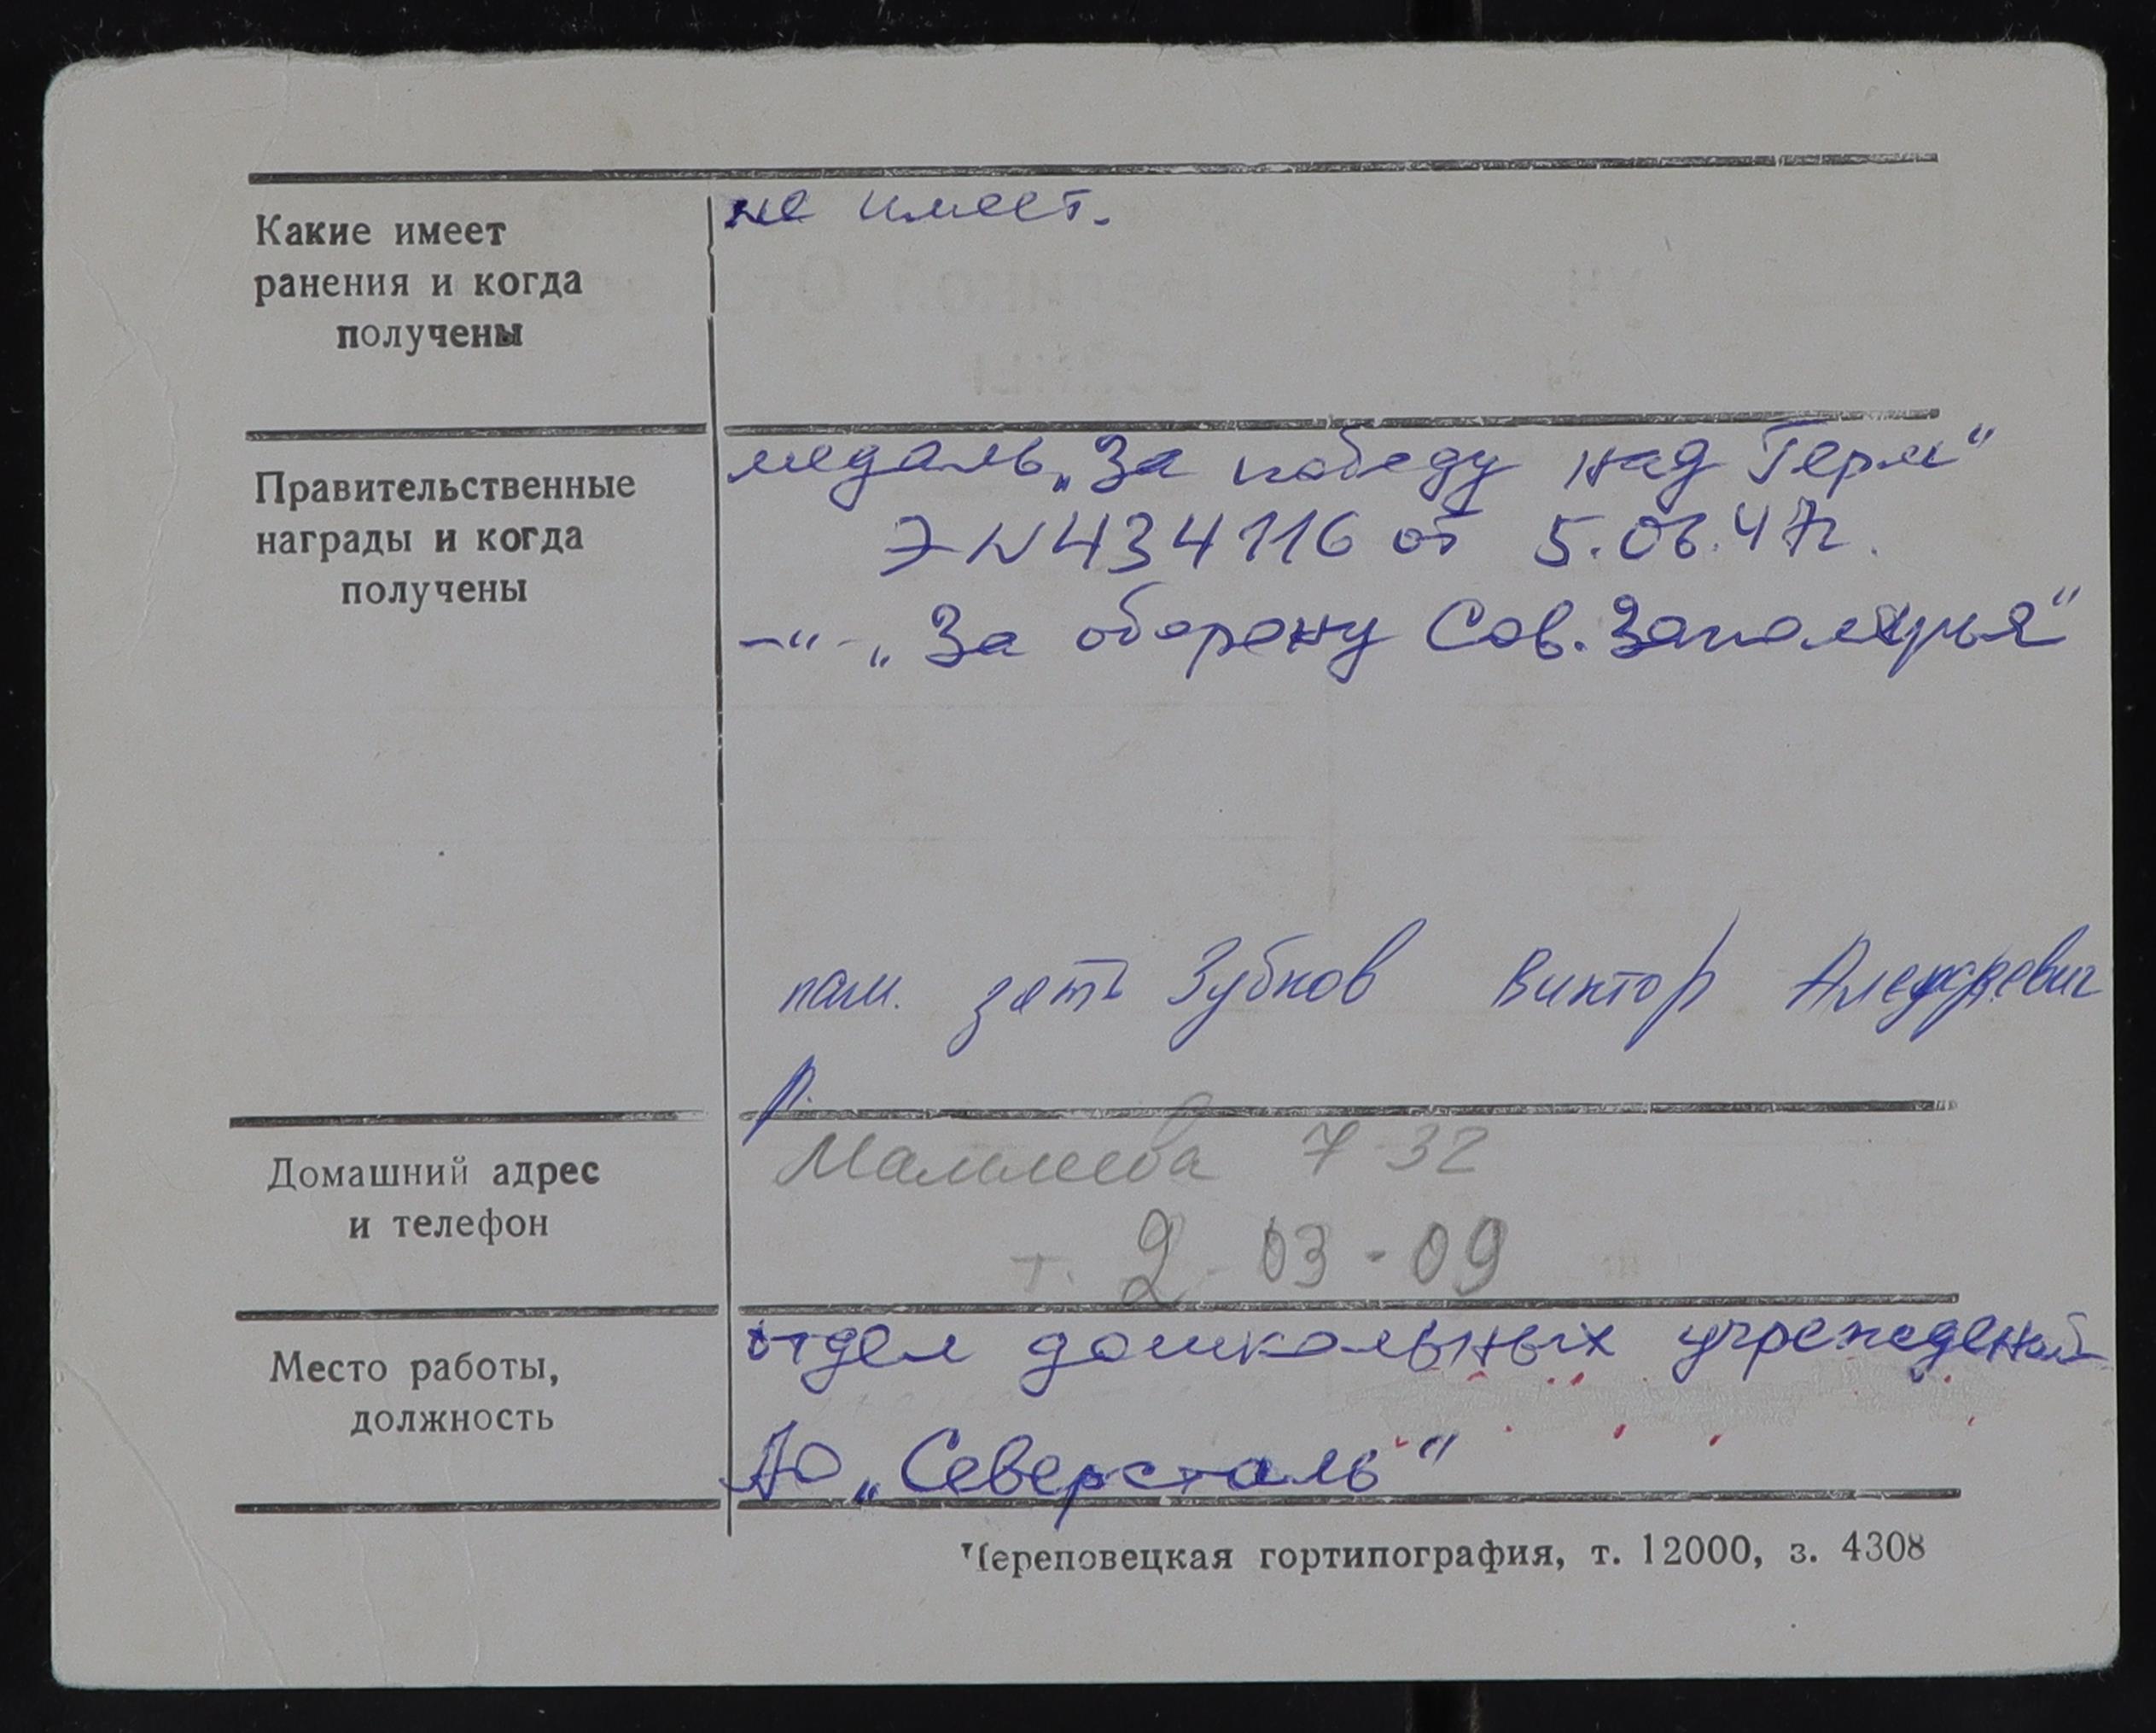 Какие имеет
ранения и когда
получены
не имеет.
Правительственные
награды и когда
получены
медаль „За победу над Герм“
Э N 434116 от 5.06.47г.
–"– „За оборону Сов. Заполярья“
пам. зять Зубков Виктор
р.
Домашний адрес
и телефон
7-32
т. 2-03-09
Место работы,
должность
отдел дошкольных учреждений
АО „Северсталь“
Череповецкая гортипография, т. 12000, з. 4308